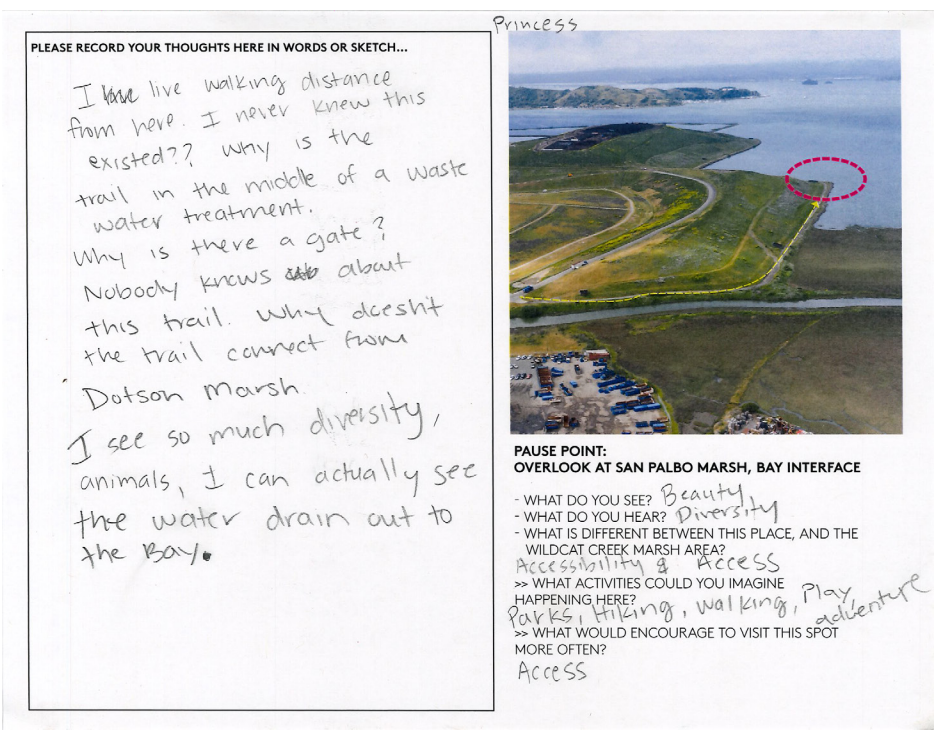 Princess
PLEASE RECORD YOUR THOUGHTS HERE IN WORDS OR SKETCH...
I live walking distance
from here. I never knew this
existed?? Why is the
trail in the middle of a waste
water treatment.
Why is there a gate?
Nobody knows about
this trail. Why doesn't
the trail connect from
Dotson Marsh.
I see so much diversity,
animals, I can actually see
the water drain out to
the Bay.
PAUSE POINT:
OVERLOOK AT SAN PALBO MARSH, BAY INTERFACE
- WHAT DO YOU SEE? Beauty
- WHAT DO YOU HEAR? Diversity
- WHAT IS DIFFERENT BETWEEN THIS PLACE, AND THE
WILDCAT CREEK MARSH AREA?
Accessibility & Access
>> WHAT ACTIVITIES COULD YOU IMAGINE
HAPPENING HERE?
Parks, Hiking, walking, Play,
adventure
>> WHAT WOULD ENCOURAGE TO VISIT THIS SPOT
MORE OFTEN?
Access